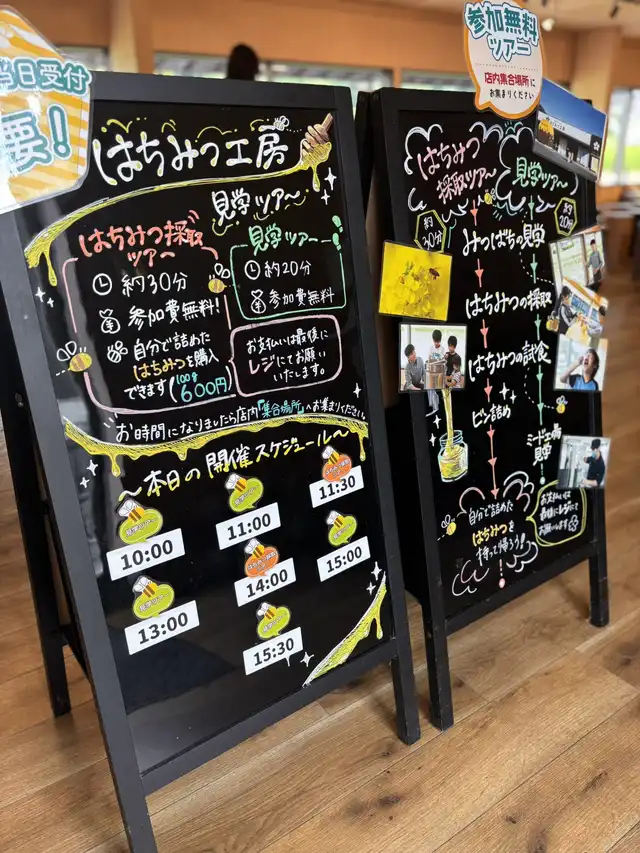 当日受付
要！
はちみつ工房
見学ツアー
はちみつ採取
ツアー
約30分
参加費無料！
自分で詰めた
はちみつを購入
できます(100g 600円)
見学ツアー
約20分
参加費無料
お支払いは最後に
レジにてお願い
いたします。
お時間になりましたら店内「集合場所」へお集まりください。
～本日の開催スケジュール～
見学ツアー
10:00
見学ツアー
11:00
はちみつ採取
11:30
見学ツアー
13:00
はちみつ採取
14:00
見学ツアー
15:00
見学ツアー
15:30
参加無料
ツアー
店内集合場所に
お集まりください
はちみつ
採取ツアー
約30分
見学ツアー
約20分
みつばちの見学
はちみつの採取
はちみつの試食
ビン詰め
ミードエ場
見学
自分で詰めた
はちみつを
持って帰ろう！
お支払いは
最後にレジにて
お願いします